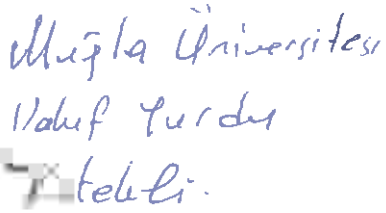 Muğla Üniversitesi
Vakıf Yurdu